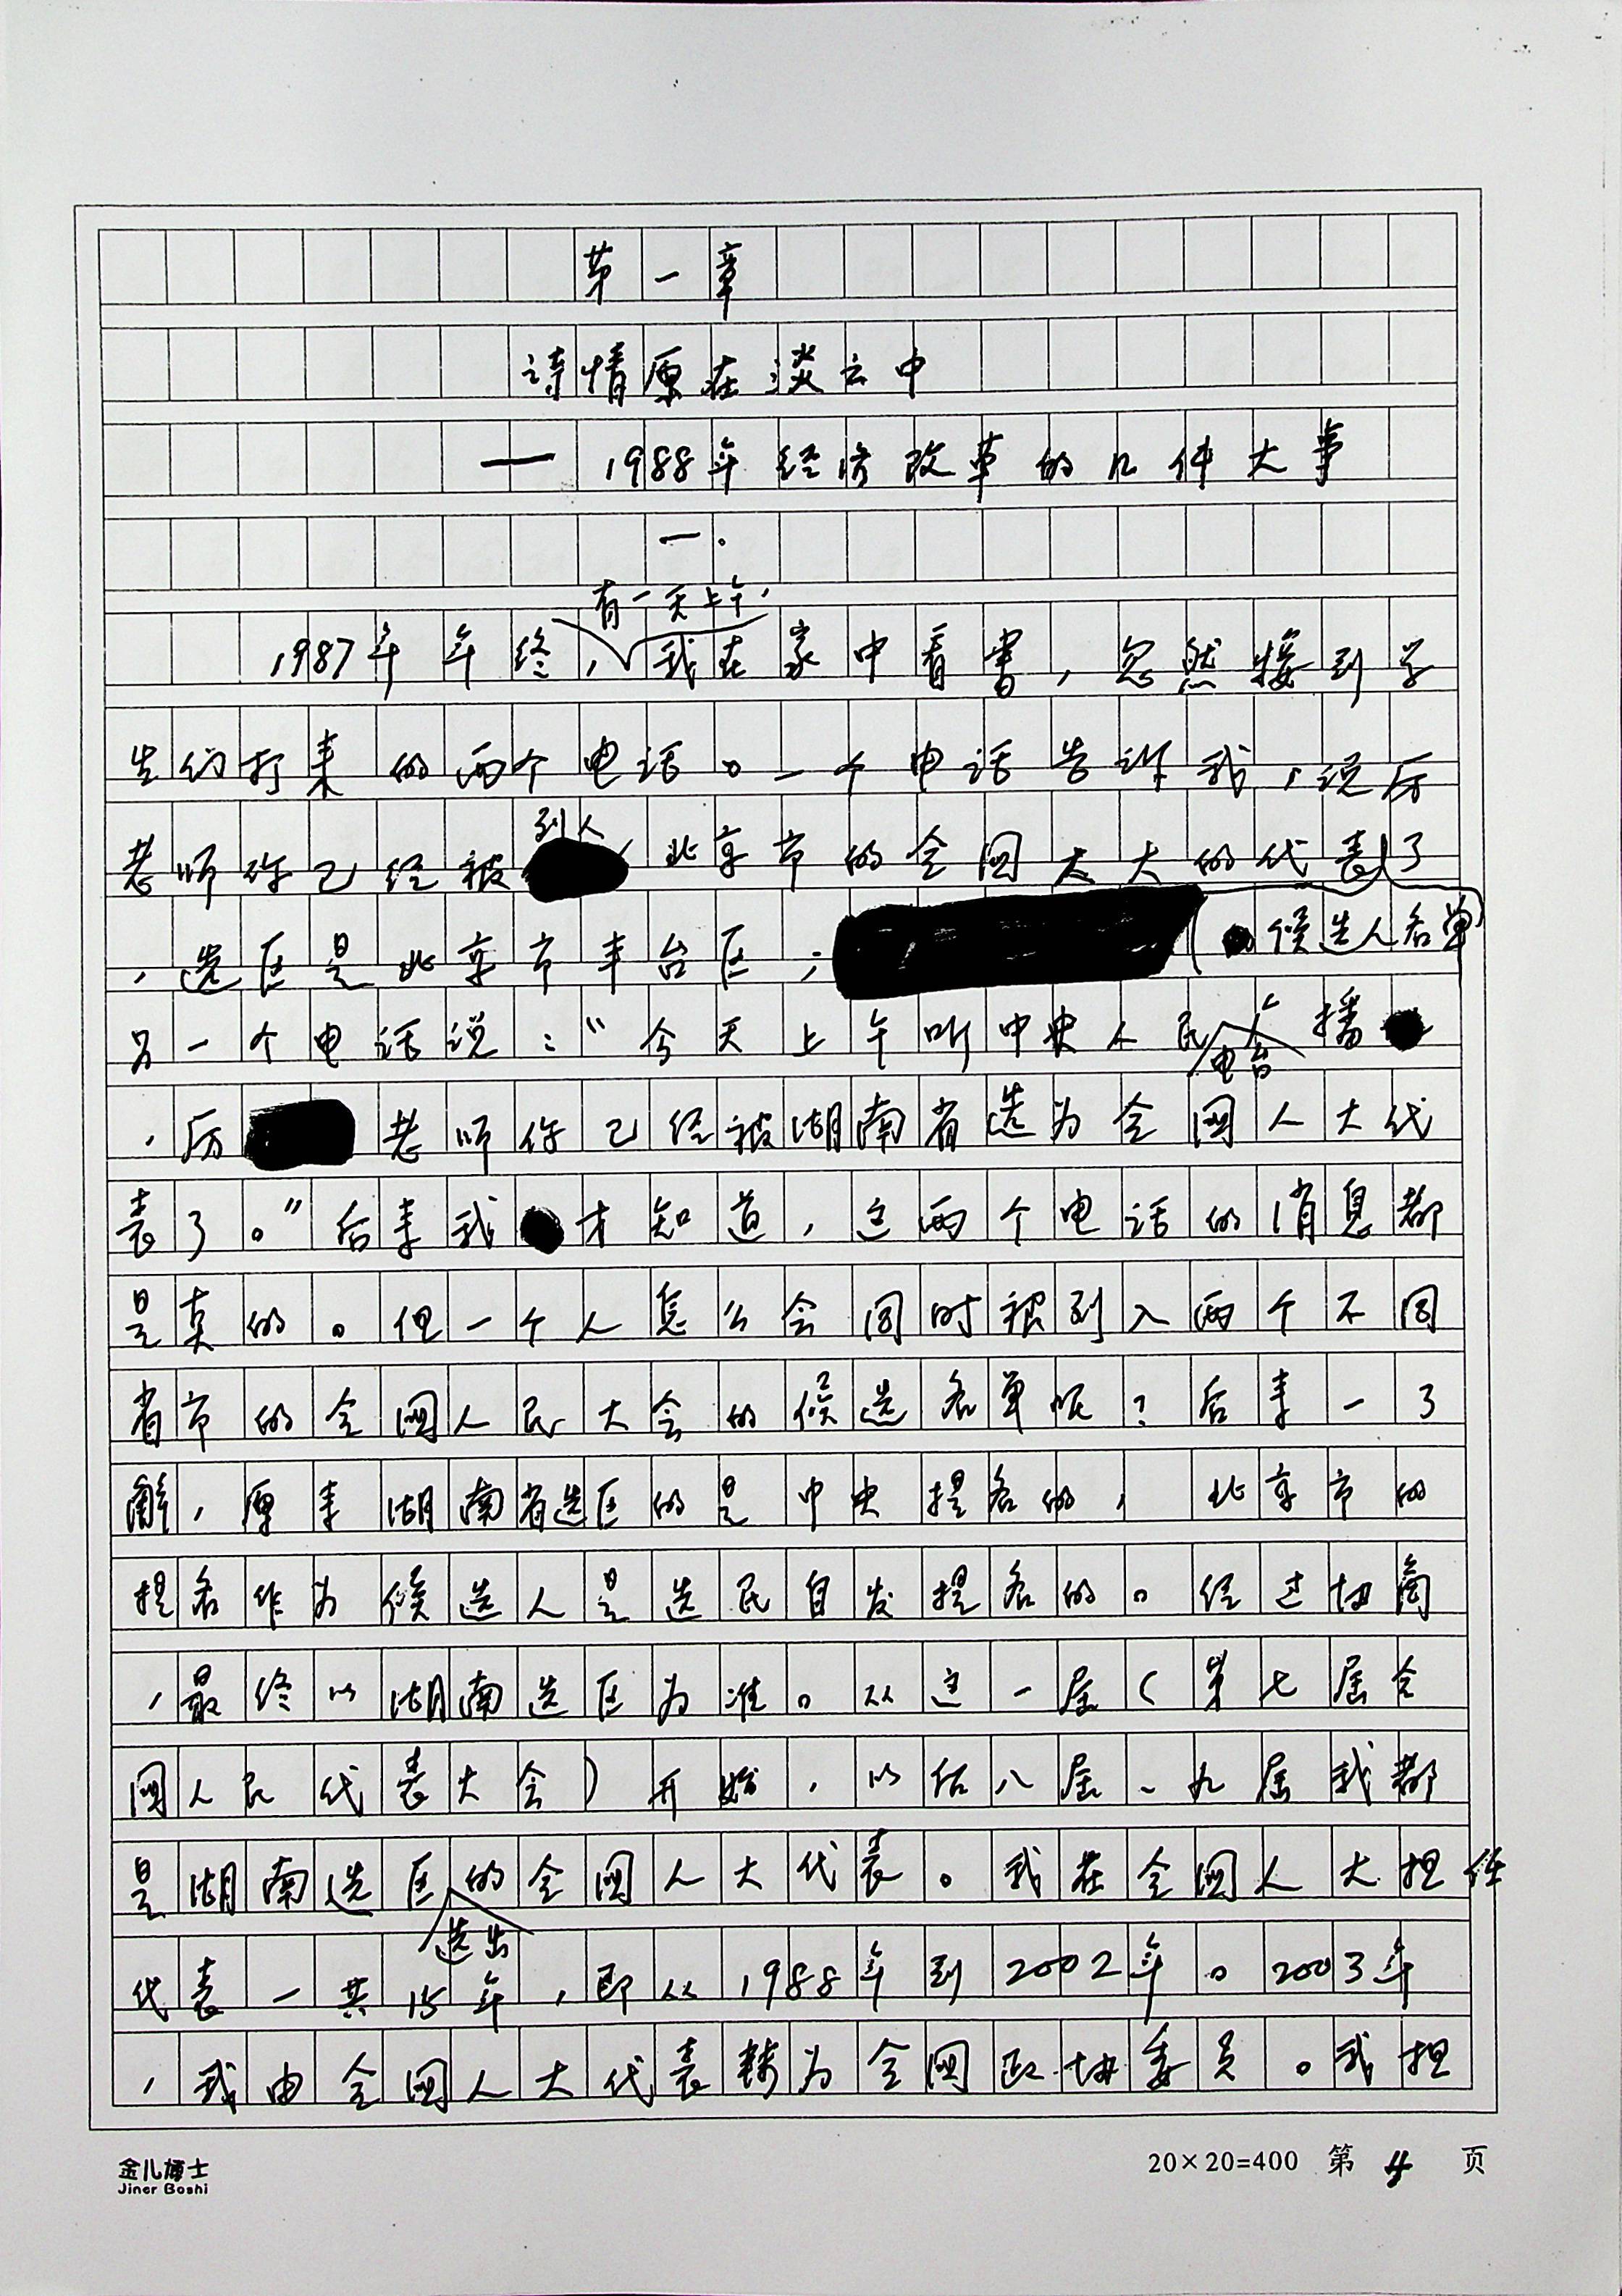 第一章
诗情原在淡云中
— 1988年经济改革的几件大事
一.
有一天上午,
1987年年终,我在家中看书,忽然接到学
生们打来的两个电话。一个电话告诉我,说厉
列入
老师你已经被北京市的全国人大的代表了
,选区是北京市丰台区;
候选人名单
另一个电话说:“今天上午听中央人民广播
电台
,厉老师你已经被湖南省选为全国人大代
表了。”后来我才知道,这两个电话的消息都
是真的。但一个人怎么会同时被列入两个不同
省市的全国人民大会的候选名单呢?后来一了
解,原来湖南省选区的是中央提名的,北京市的
提名作为候选人是选民自发提名的。经过协商
,最终以湖南选区为准。从这一届(第七届全
国人民代表大会)开始,以后八届、九届我都
是湖南选区的全国人大代表。我在全国人大担任
选出
代表一共15年,即从1988年到2002年。2003年
,我由全国人大代表转为全国政协委员。我担
金儿博士
Jiner Boshi
20×20=400 第 4 页